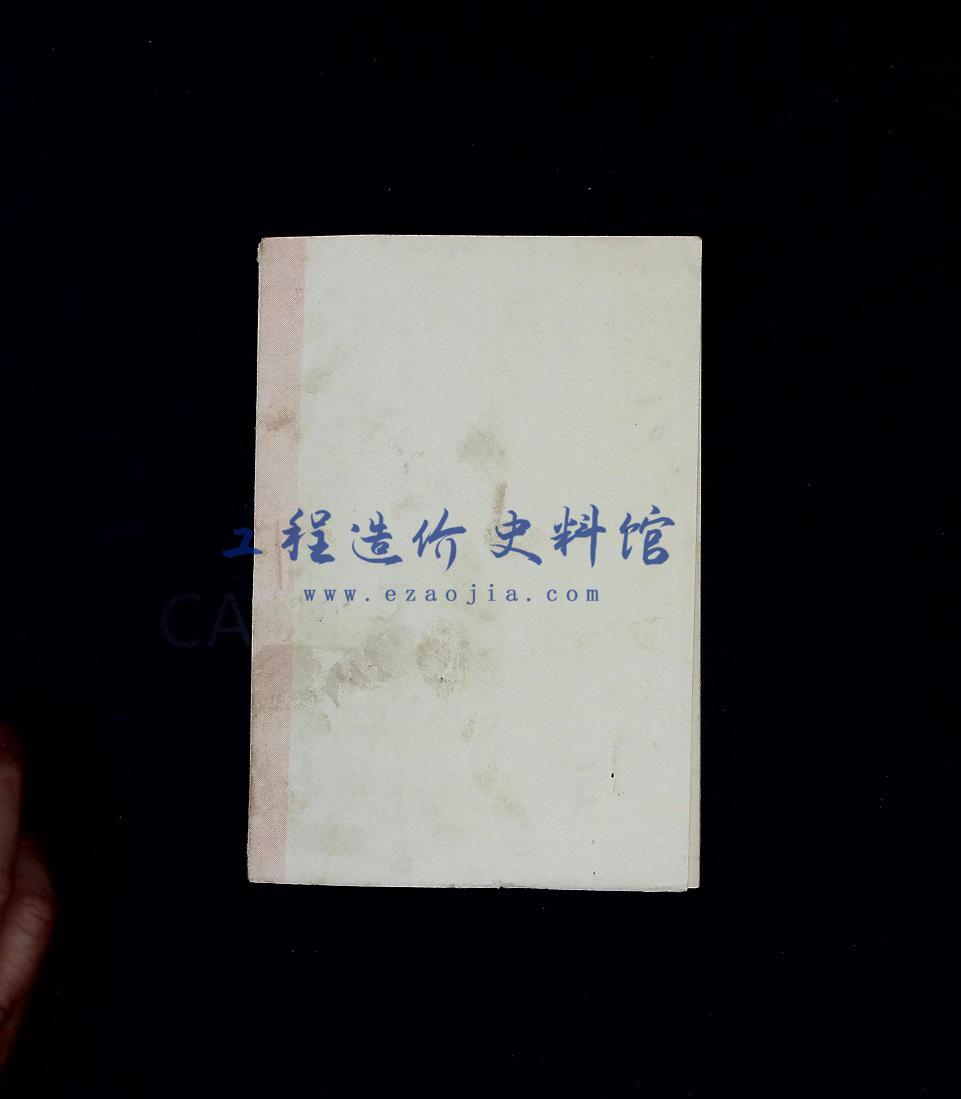 工程造价史料馆
www.ezaojia.com
CA